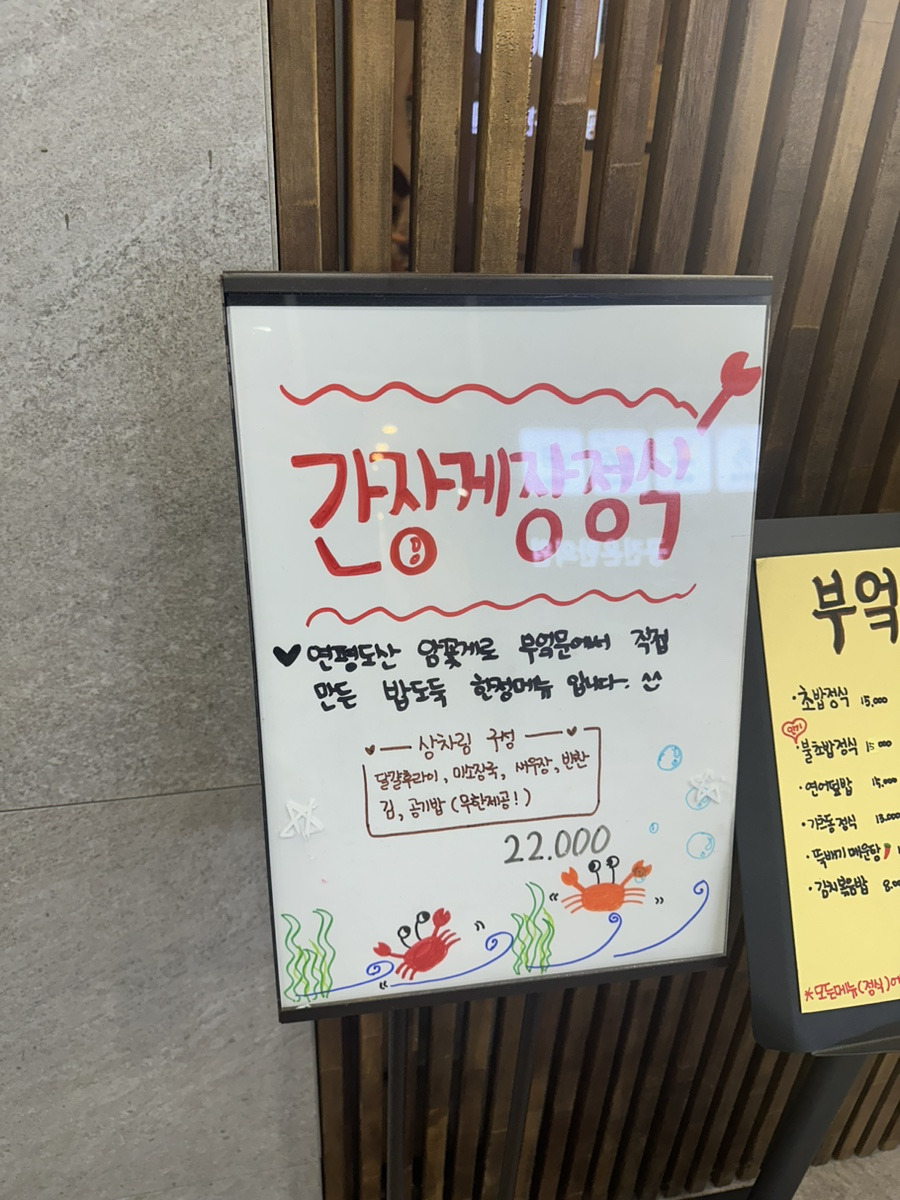 간장게장정식
연평도산 암꽃게로 부엌문에서 직접
만든 밥도둑 한정메뉴 입니다. ^^
상차림 구성
달걀후라이, 미소장국, 새우장, 반찬
김, 공기밥 (무한제공!)
22.000
부엌
·초밥정식 15,000
인기
·불초밥정식
·연어덮밥 15,000
·기초동정식 13,000
·뚝배기 매운탕
·김치볶음밥 8.00
*모든메뉴(정식)에